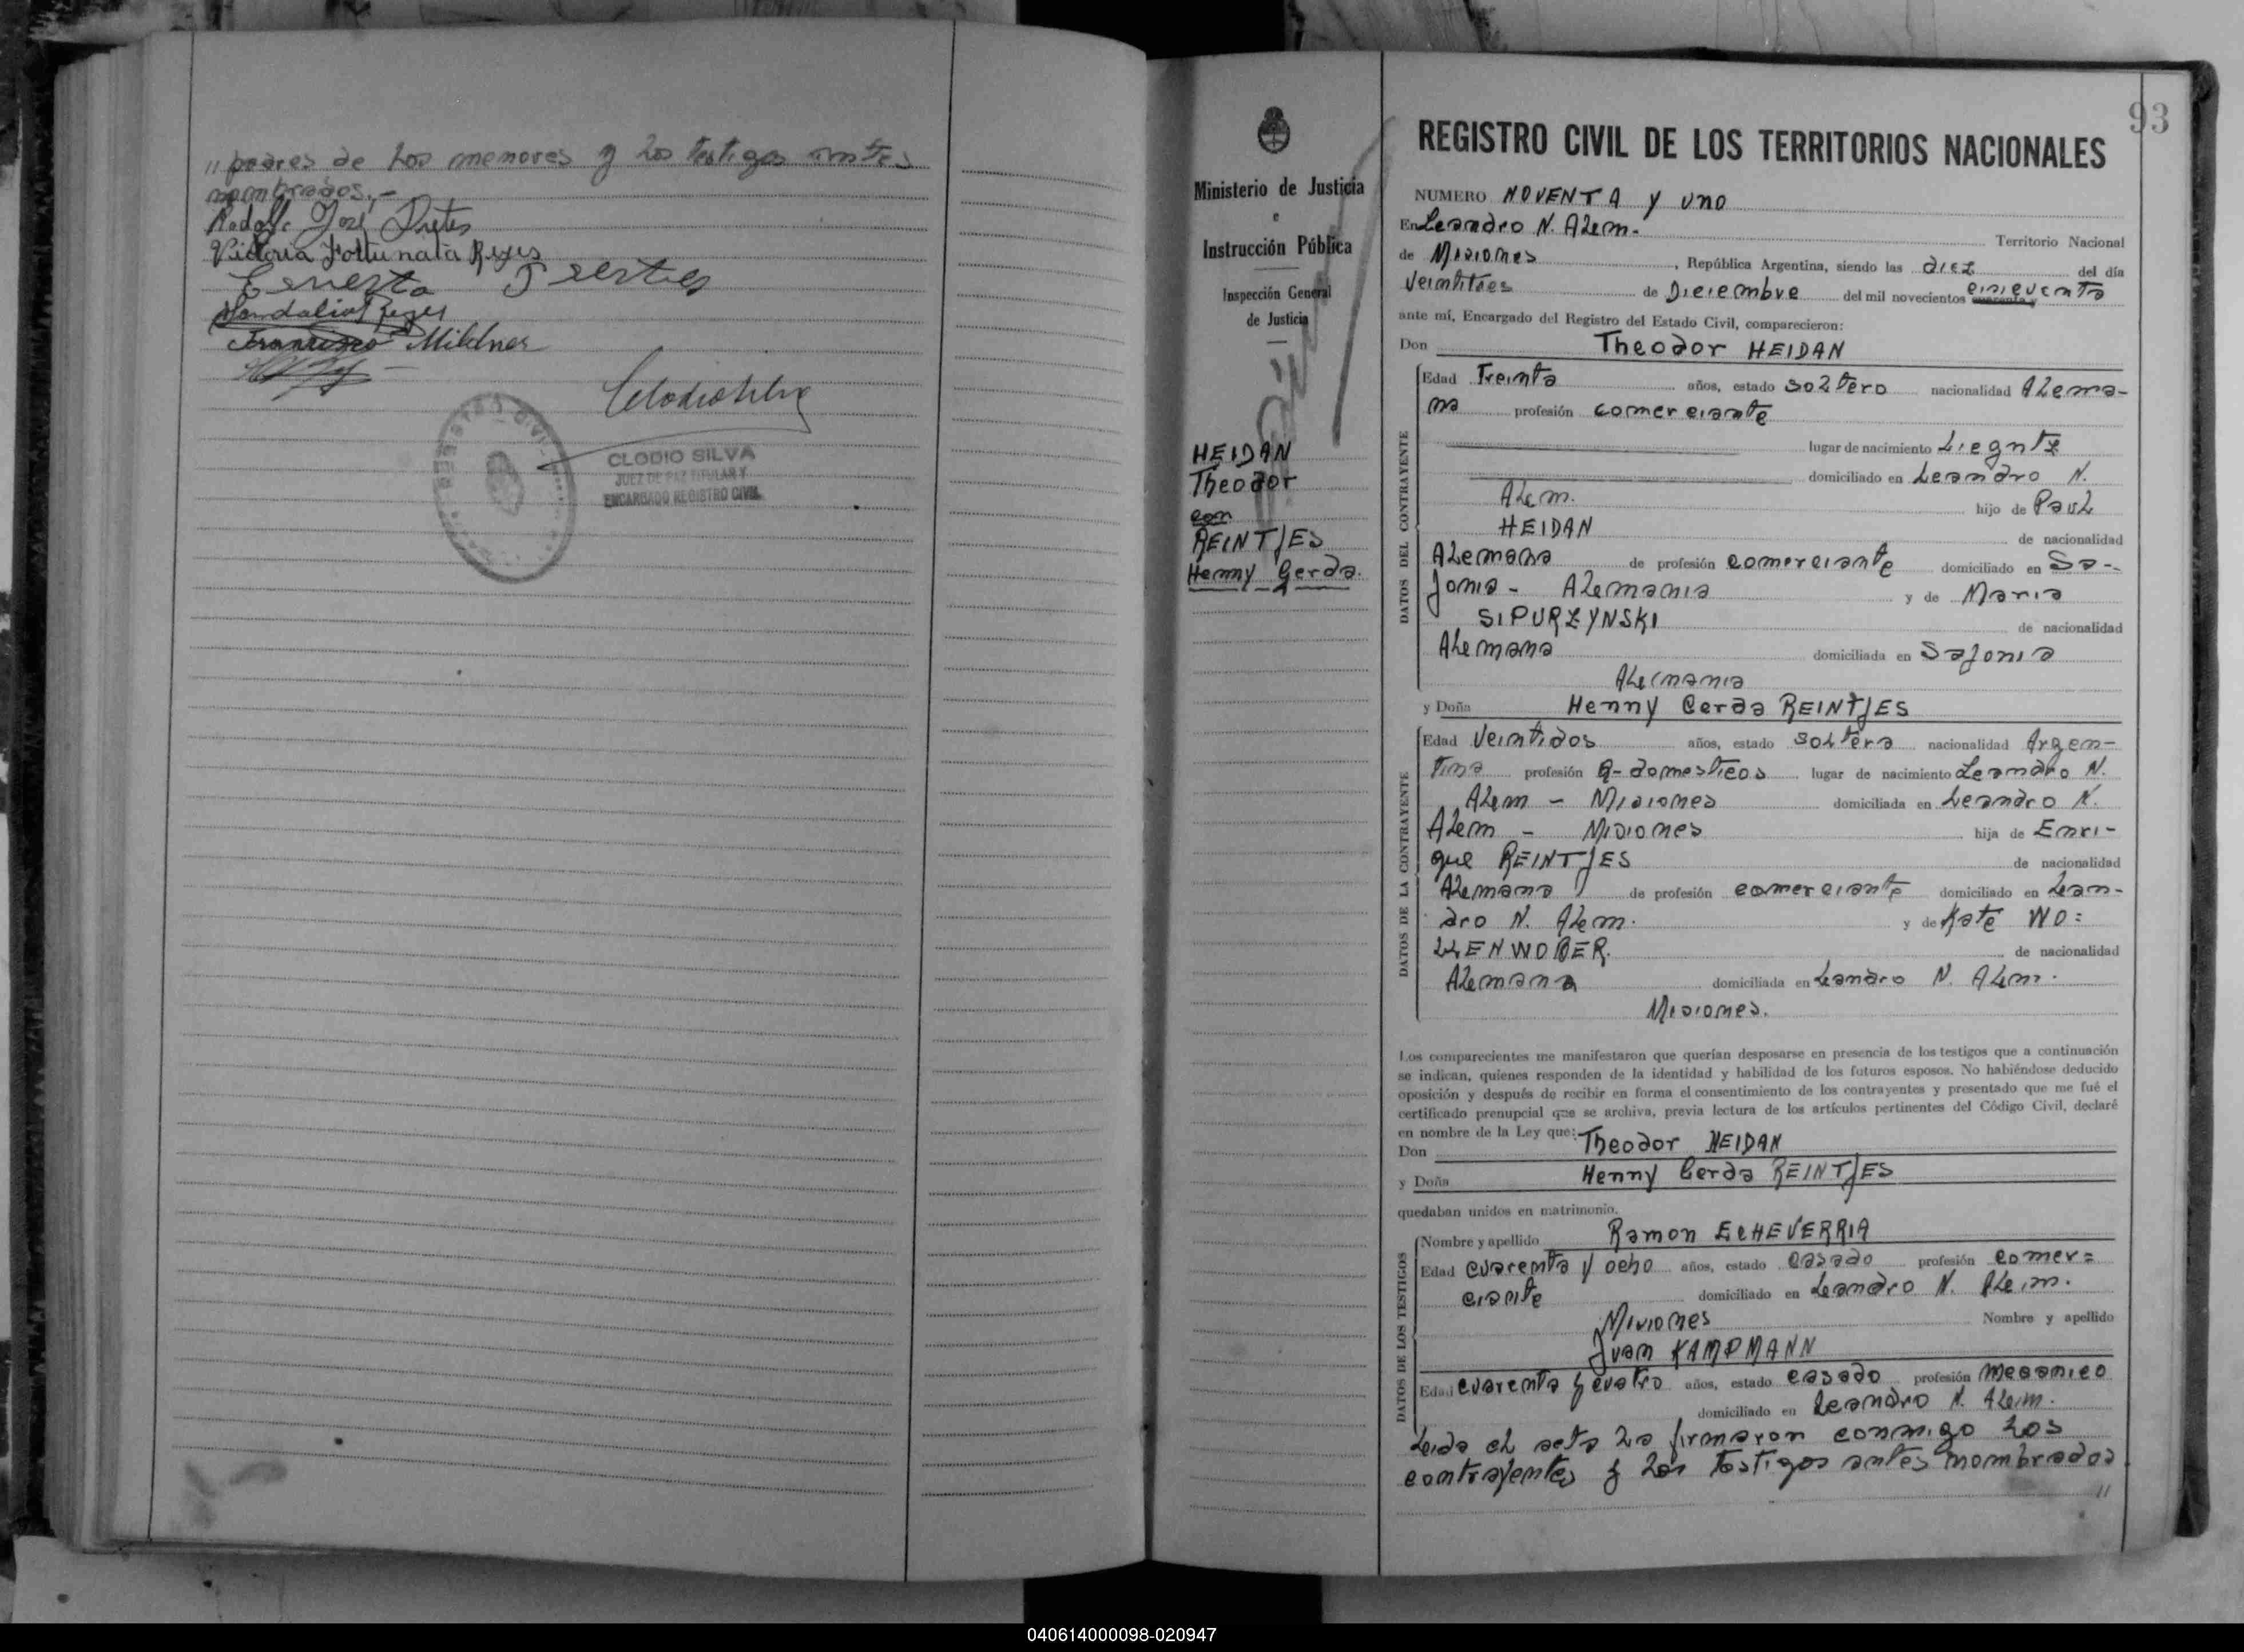 " padres de los menores y los testigos antes
nombrados.-
Rodolfo José
Victoria Fortunata Reyes
Ernesto
Reyes
Francisco Mildner
Clodio Silva
REGISTRO CIVIL
CLODIO SILVA
JUEZ DE PAZ TITULAR Y
ENCARGADO REGISTRO CIVIL
Ministerio de Justicia
e
Instrucción Pública
Inspección General
de Justicia
HEIDAN
Theodor
con
REINTJES
Henny Gerda.
93
REGISTRO CIVIL DE LOS TERRITORIOS NACIONALES
NUMERO NOVENTA y uno
En Leandro N. Alem.- Territorio Nacional
de Misiones, República Argentina, siendo las diez del día
Veintitres de Diciembre del mil novecientos cuarenta y cincuenta
ante mí, Encargado del Registro del Estado Civil, comparecieron:
Don Theodor HEIDAN
DATOS DEL CONTRAYENTE
Edad Treinta años, estado soltero nacionalidad Alema-
na profesión comerciante
lugar de nacimiento Liegntz
domiciliado en Leandro N.
Alem. hijo de Paul
HEIDAN de nacionalidad
Alemana de profesión comerciante domiciliado en Sa-
jonia - Alemania y de Maria
SIPURZYNSKI de nacionalidad
Alemana domiciliada en Sajonia
Alemania
y Doña Henny Gerda REINTJES
DATOS DE LA CONTRAYENTE
Edad Veintidos años, estado soltera nacionalidad Argen-
tina profesión Q-domesticos lugar de nacimiento Leandro N.
Alem - Misiones domiciliada en Leandro N.
Alem - Misiones hija de Enri-
que REINTJES de nacionalidad
Alemana de profesión comerciante domiciliado en Lean-
dro N. Alem. y de Kate WO=
LLENWOBER. de nacionalidad
Alemana domiciliada en Leandro N. Alem.
Misiones.
Los comparecientes me manifestaron que querían desposarse en presencia de los testigos que a continuación
se indican, quienes responden de la identidad y habilidad de los futuros esposos. No habiéndose deducido
oposición y después de recibir en forma el consentimiento de los contrayentes y presentado que me fué el
certificado prenupcial que se archiva, previa lectura de los artículos pertinentes del Código Civil, declaré
en nombre de la Ley que:
Don Theodor HEIDAN
y Doña Henny Gerda REINTJES
quedaban unidos en matrimonio.
DATOS DE LOS TESTIGOS
Nombre y apellido Ramon ECHEVERRIA
Edad cuarenta y ocho años, estado casado profesión comer=
ciante domiciliado en Leandro N. Alem.
Misiones Nombre y apellido
Juan KAMPMANN
Edad cuarenta y cuatro años, estado casado profesión mecanico
domiciliado en Leandro N. Alem.
Leida el acta la firmaron conmigo los
contrayentes y los testigos antes nombrados
"
040614000098-020947